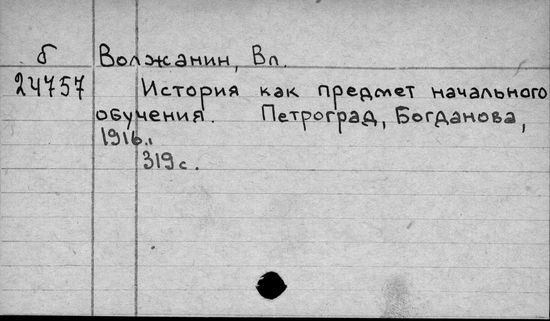 б Волжанин, Вл.
24757 История как предмет начального
обучения. Петроград, Богданова,
1916.
319 с.